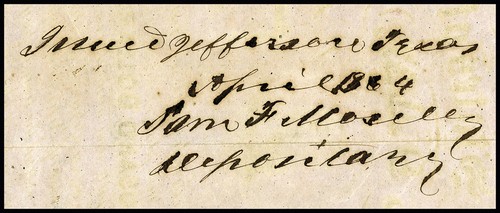 Issued Jefferson Texas
April 1864
Sam F Moseley
Depositary